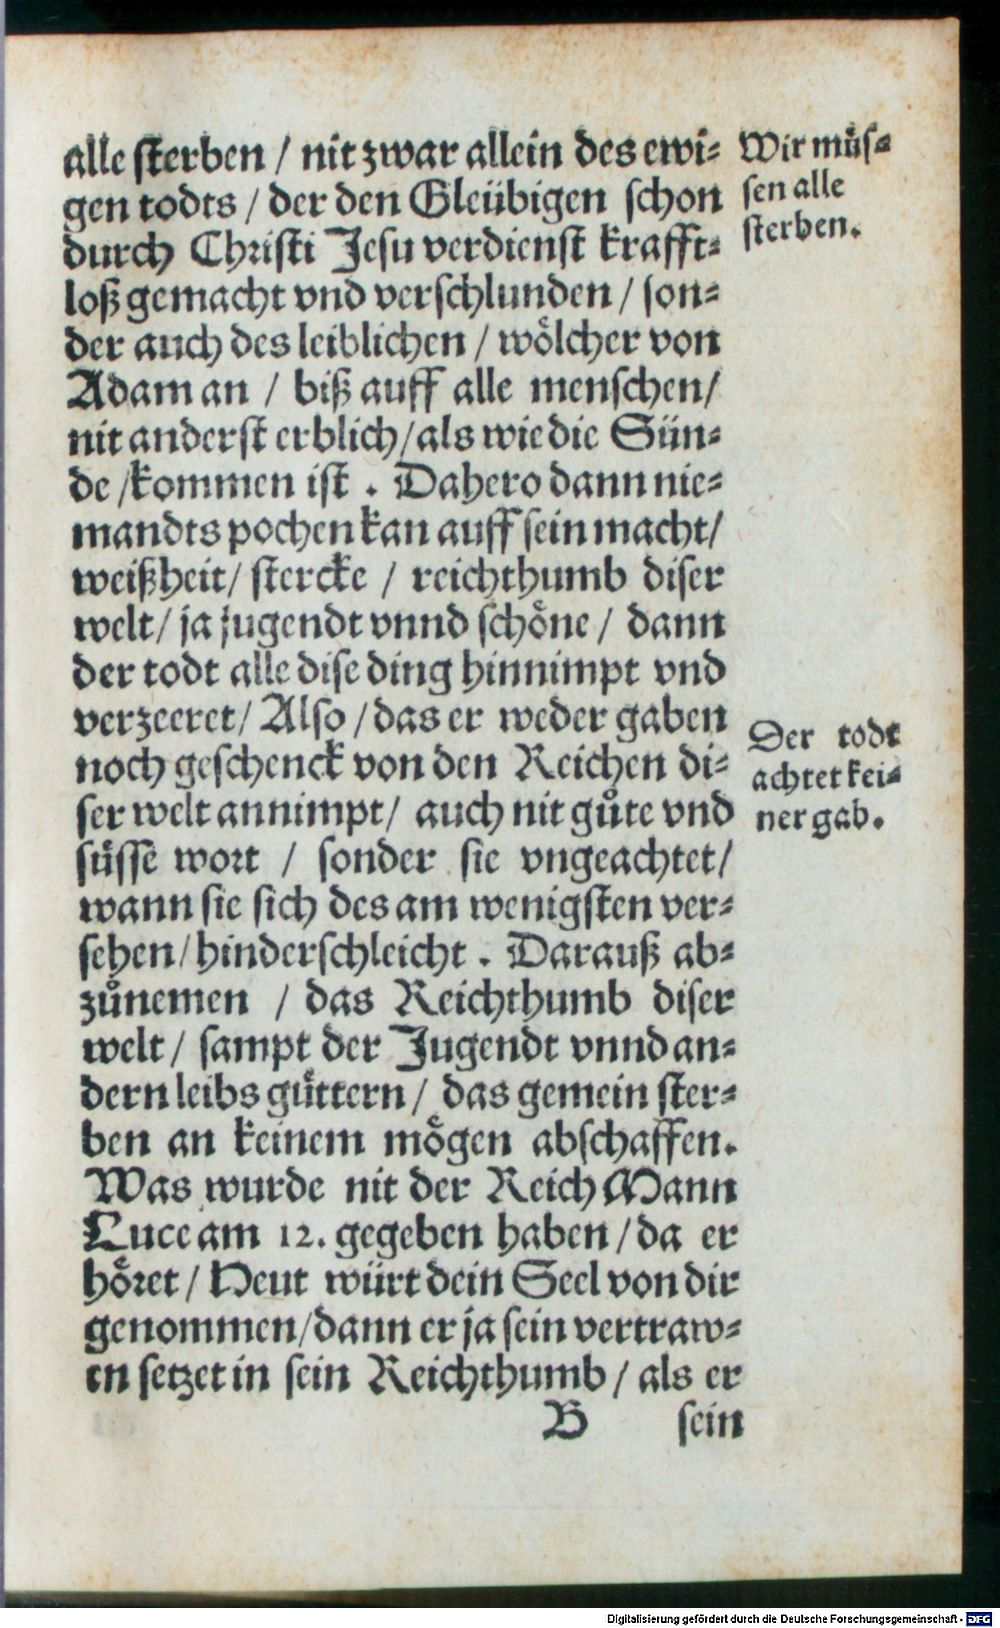 alle ſterben / nit zwar allein des ewi⸗
gen todts / der den Gleübigen ſchon
durch Chriſti Jeſu verdienſt krafft⸗
loß gemacht vnd verſchlunden / ſon⸗
der auch des leiblichen / wölcher von
Adam an / biß auff alle menſchen /
nit anderſt erblich / als wie die Sün⸗
de / kommen iſt . Dahero dann nie⸗
mandts pochen kan auff ſein macht /
weißheit / ſtercke / reichthumb diſer
welt / ja jugendt vnnd ſchöne / dann
der todt alle diſe ding hinnimpt vnd
verzeeret / Alſo / das er weder gaben
noch geſchenck von den Reichen di⸗
ſer welt annimpt / auch nit gůte vnd
ſüſſe wort / ſonder ſie vngeachtet /
wann ſie ſich des am wenigſten ver⸗
ſehen / hinderſchleicht . Darauß ab⸗
zůnemen / das Reichthumb diſer
welt / ſampt der Jugendt vnnd an⸗
dern leibs güttern / das gemein ſter⸗
ben an keinem mögen abſchaffen.
Was wurde nit der Reich Mann
Luce am 12. gegeben haben / da er
höret / Heut würt dein Seel von dir
genommen / dann er ja ſein vertraw⸗
en ſetzet in ſein Reichthumb / als er
B ſein
Wir müſ⸗
ſen alle
ſterben.
Der todt
achtet kei⸗
ner gab.
Digitalisierung gefördert durch die Deutsche Forschungsgemeinschaft - DFG